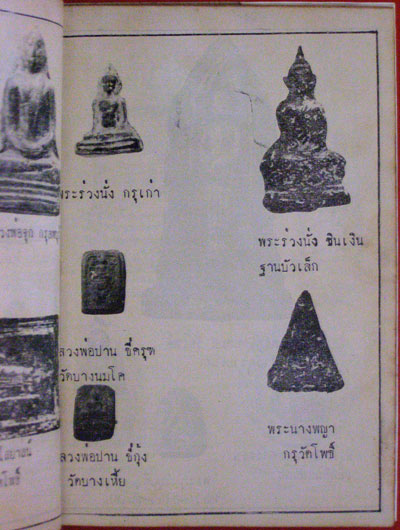 พระร่วงนั่ง กรุเก่า
พระร่วงนั่ง ชินเงิน
ฐานบัวเล็ก
หลวงพ่อปาน ขี่ครุฑ
วัดบางนมโค
พระนางพญา
กรุวัดโพธิ์
หลวงพ่อปาน ขี่กุ้ง
วัดบางเหี้ย